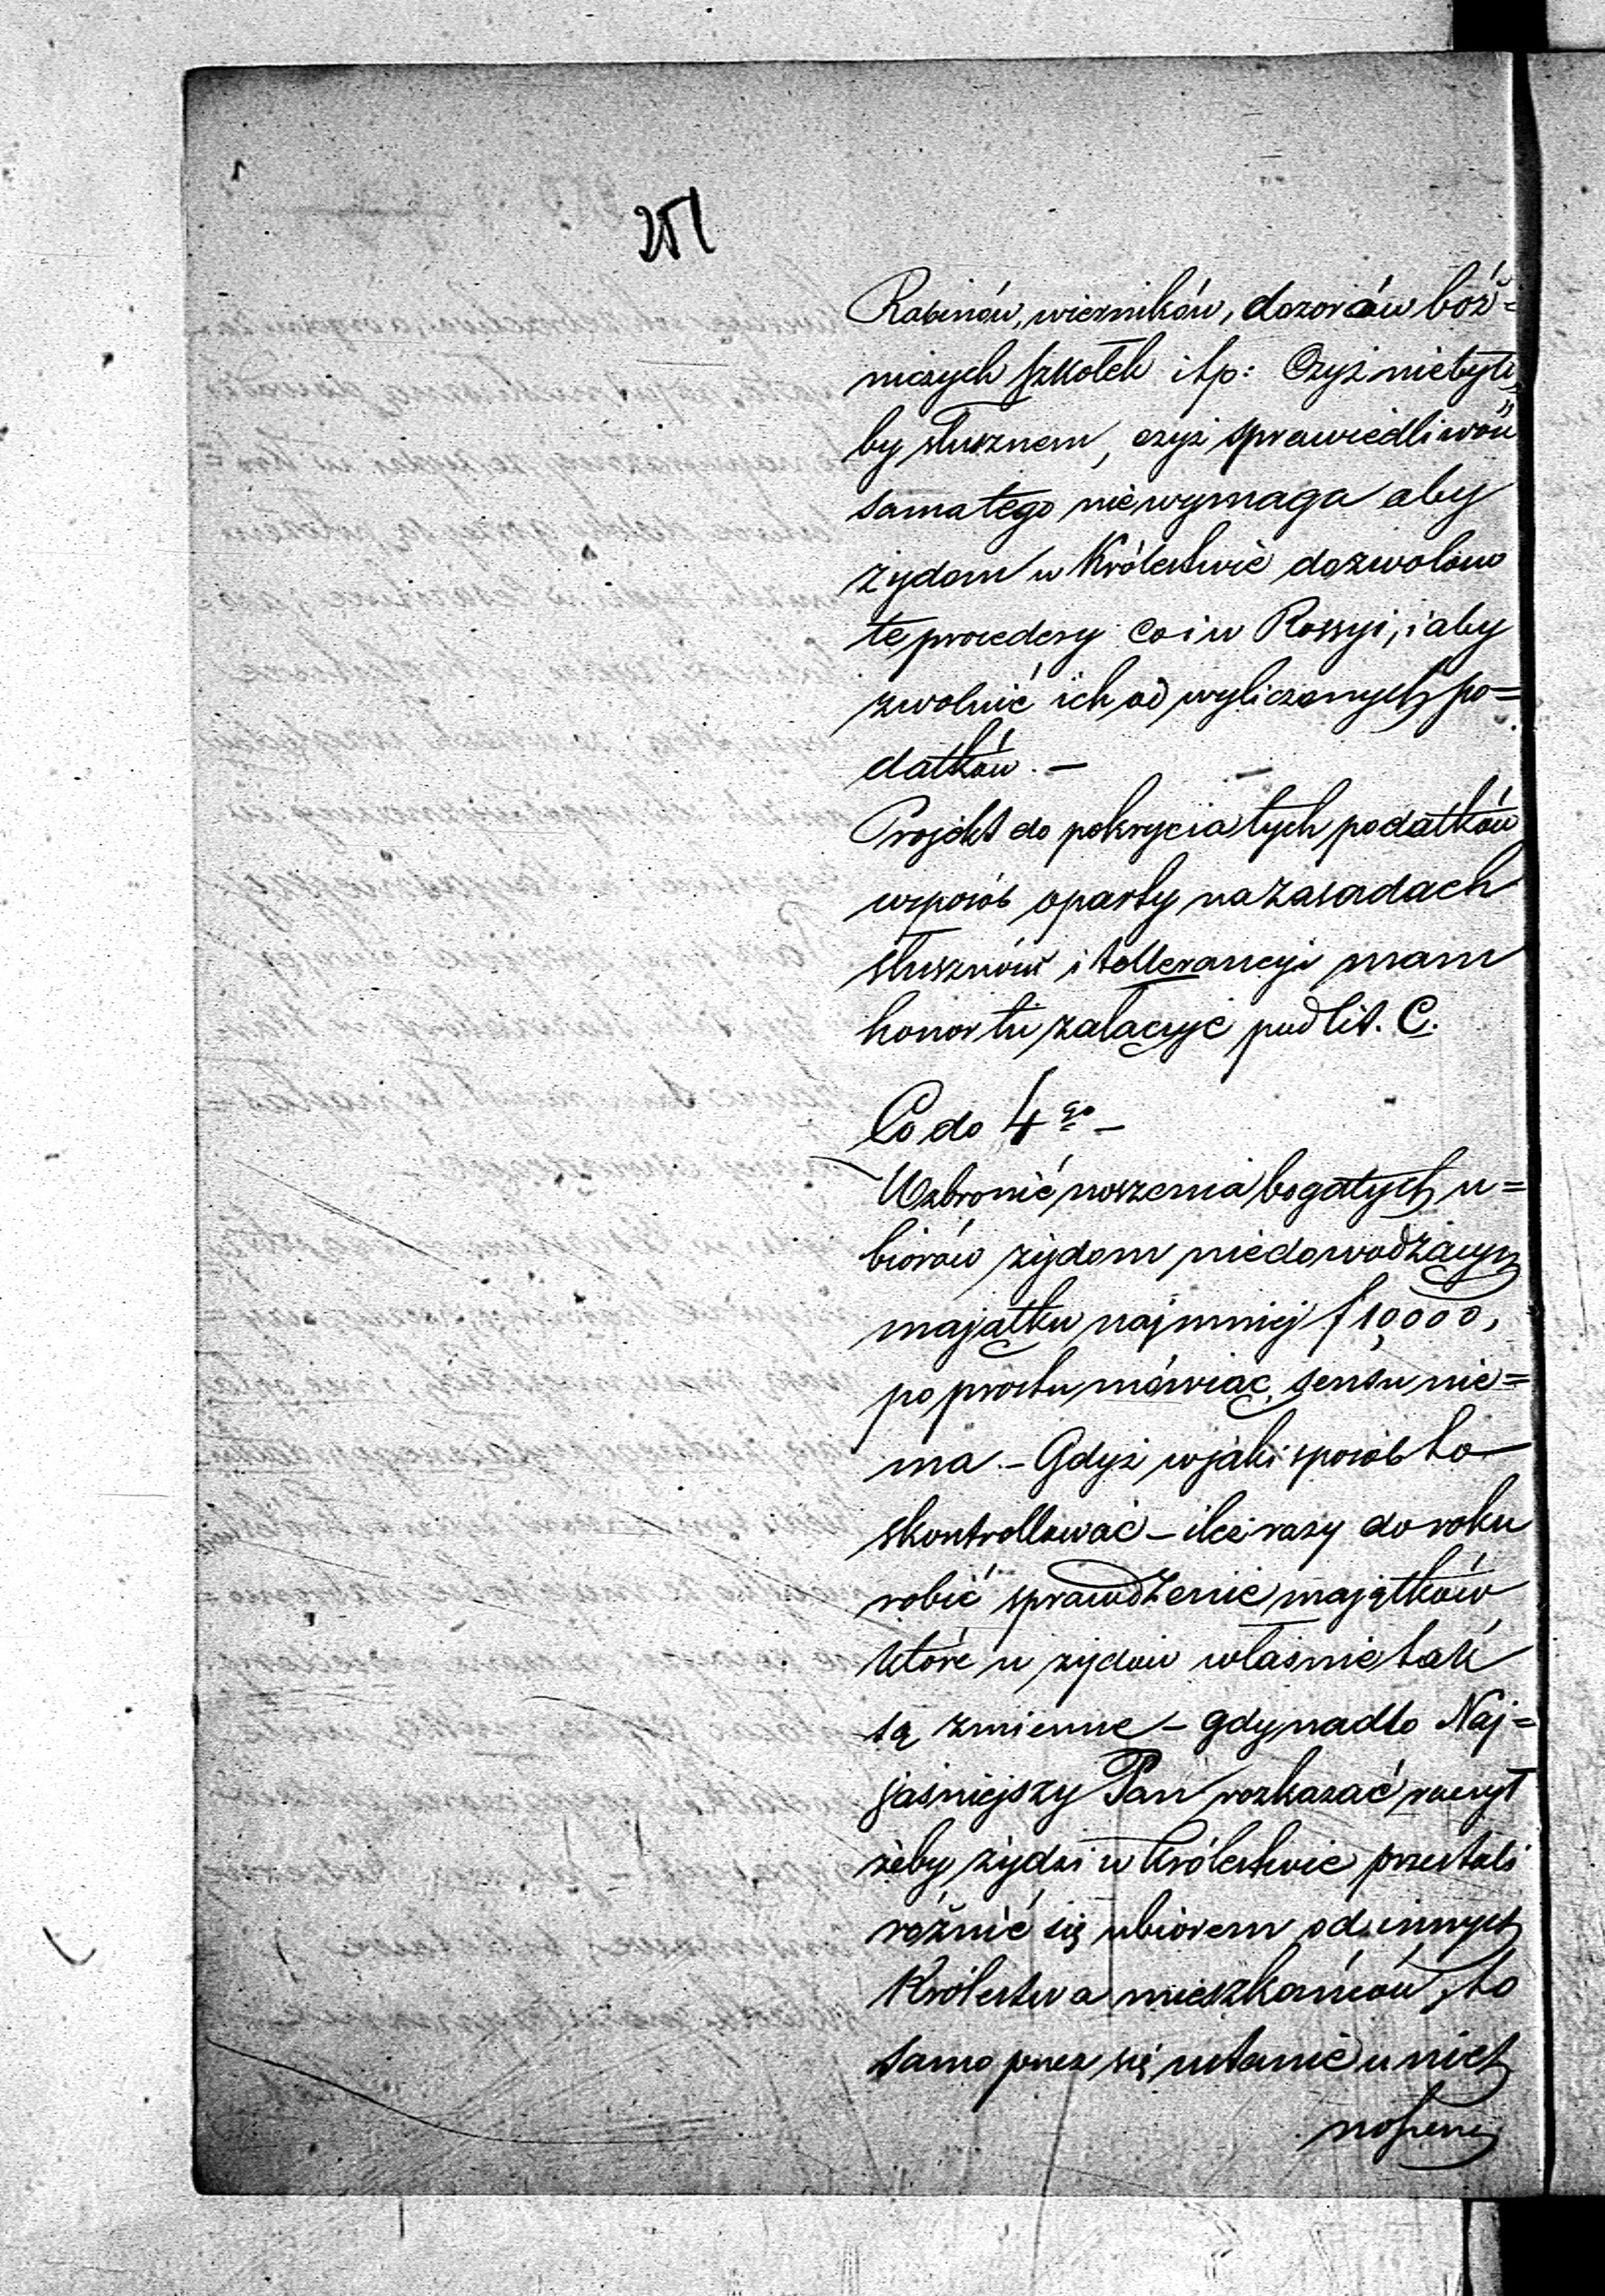 251
Rabinów, wierników, dozorców bóż=
niczych szkółek itp: Czyż niebyło
by słusznem, czyż sprawiedliwość
sama tego niewymaga aby
żydom w Królestwie dozwolono
te procedery co i w Rossyi, i aby
zwolnić ich od wyliczonych po=
datków. —
Projekt do pokrycia tych podatków
wsposób oparty na zasadach
słuszności i tollerancyi mam
honor tu załączyć pod lit. C.
Co do 4go —
Wzbronić noszenia bogatych u=
biorów żydom niedowodzącym
majątku najmniej f 10,000,
po prostu mówiąc, sensu nie=
ma. — Gdyż wjaki sposób to
skontrollować — ileż razy do roku
robić sprawdzenie majątków
które u żydów właśnie tak
są zmienne — gdy nadto Naj=
jaśniejszy Pan rozkazać raczył
żeby żydzi w Królestwie przestali
różnić się ubiorem od innych
Królestwa mieszkańców, to
samo przez się ustanie u nich